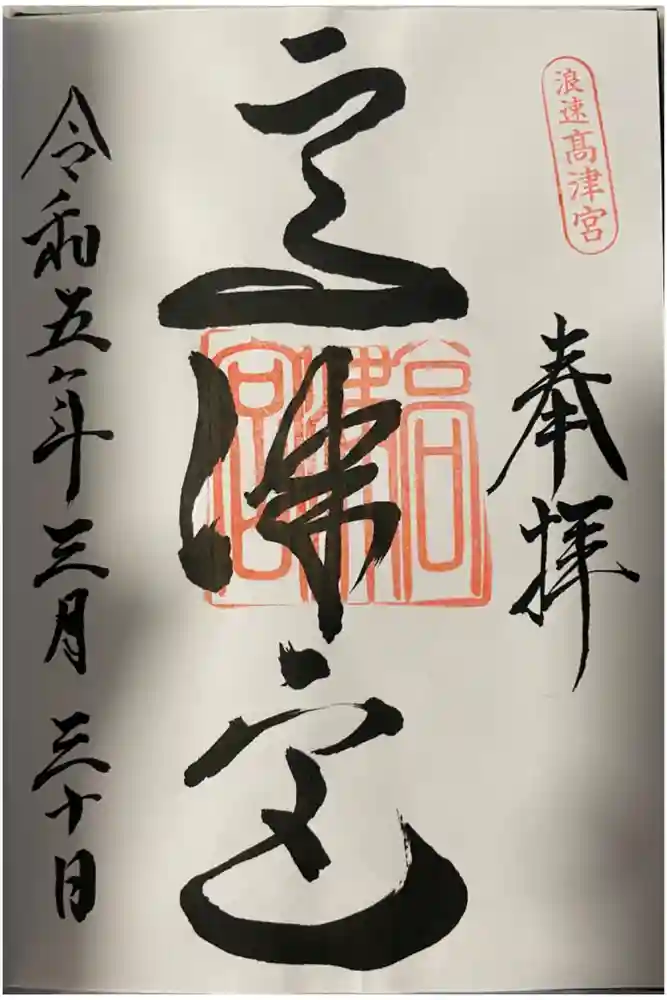 浪速高津宮
奉拝
高津宮
高津宮
令和五年三月三十日